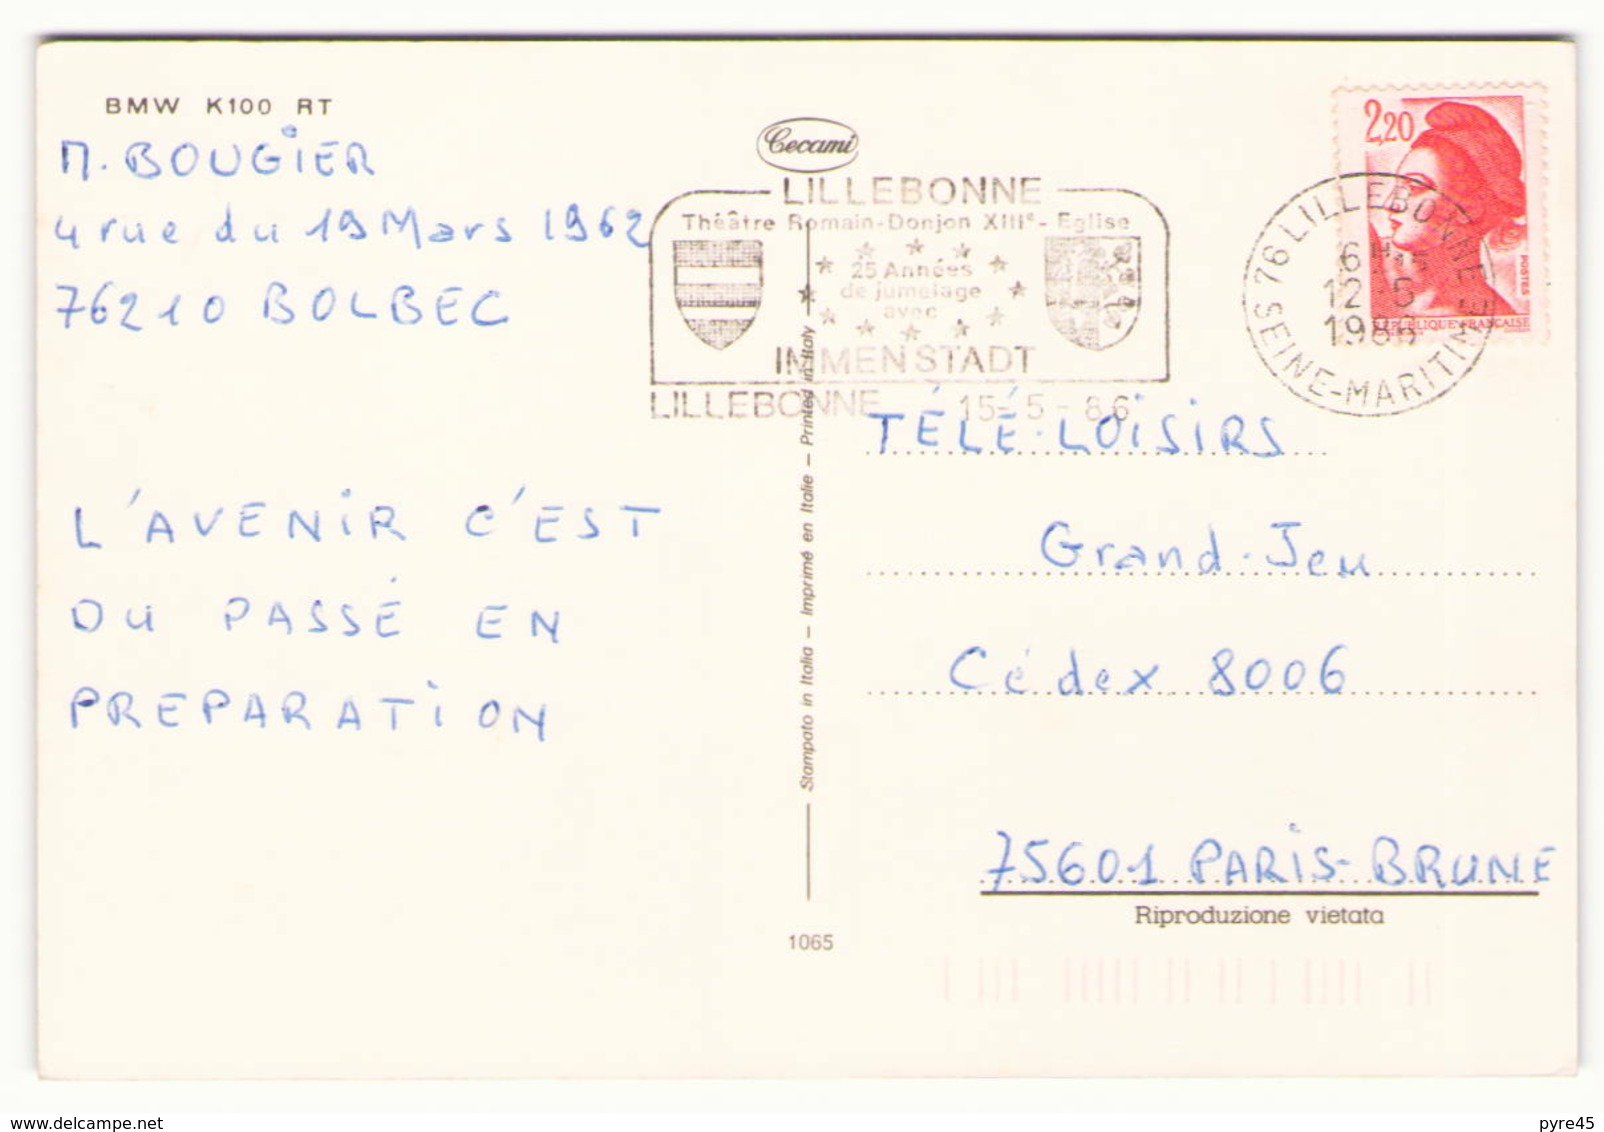 BMW K100 RT
M. BOUGIER
4 rue du 19 Mars 1962
76210 BOLBEC
L'AVENIR C'EST
DU PASSÉ EN
PREPARATION
Cecami
LILLEBONNE
Théâtre Romain-Donjon XIIIe- Eglise
25 Années
de jumelage
avec
IMMENSTADT
LILLEBONNE 15-5-86
2,20
POSTES
REPUBLIQUE FRANCAISE
76 LILLEBONNE
6H15
12-5
1986
SEINE-MARITIME
Stampato in Italia – Imprimé en Italie – Printed in Italy
TÉLÉ-LOISIRS
Grand-Jeu
Cédex 8006
75601 PARIS-BRUNE
Riproduzione vietata
1065
www.delcampe.net
pyre45